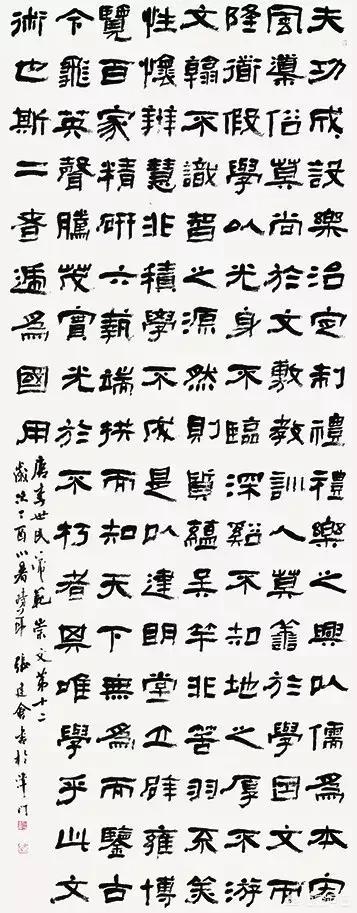 夫功成設樂治定制禮禮樂之興以儒為本宏
風導俗莫尚於文敷教訓人莫善於學因文而
隆道假學以光身不臨深谿不知地之厚不游
文翰不識智之源然則質蘊吳竿非筈羽不美
性懷辨慧非積學不成是以建明堂立辟雍博
覽百家精研六藝端拱而知天下無為而鑒古
今飛英聲騰茂實光於不朽者其唯學乎此文
術也斯二者遞為國用
唐李世民帝範崇文第十二
歲次丁酉小暑時節張建會書於津門